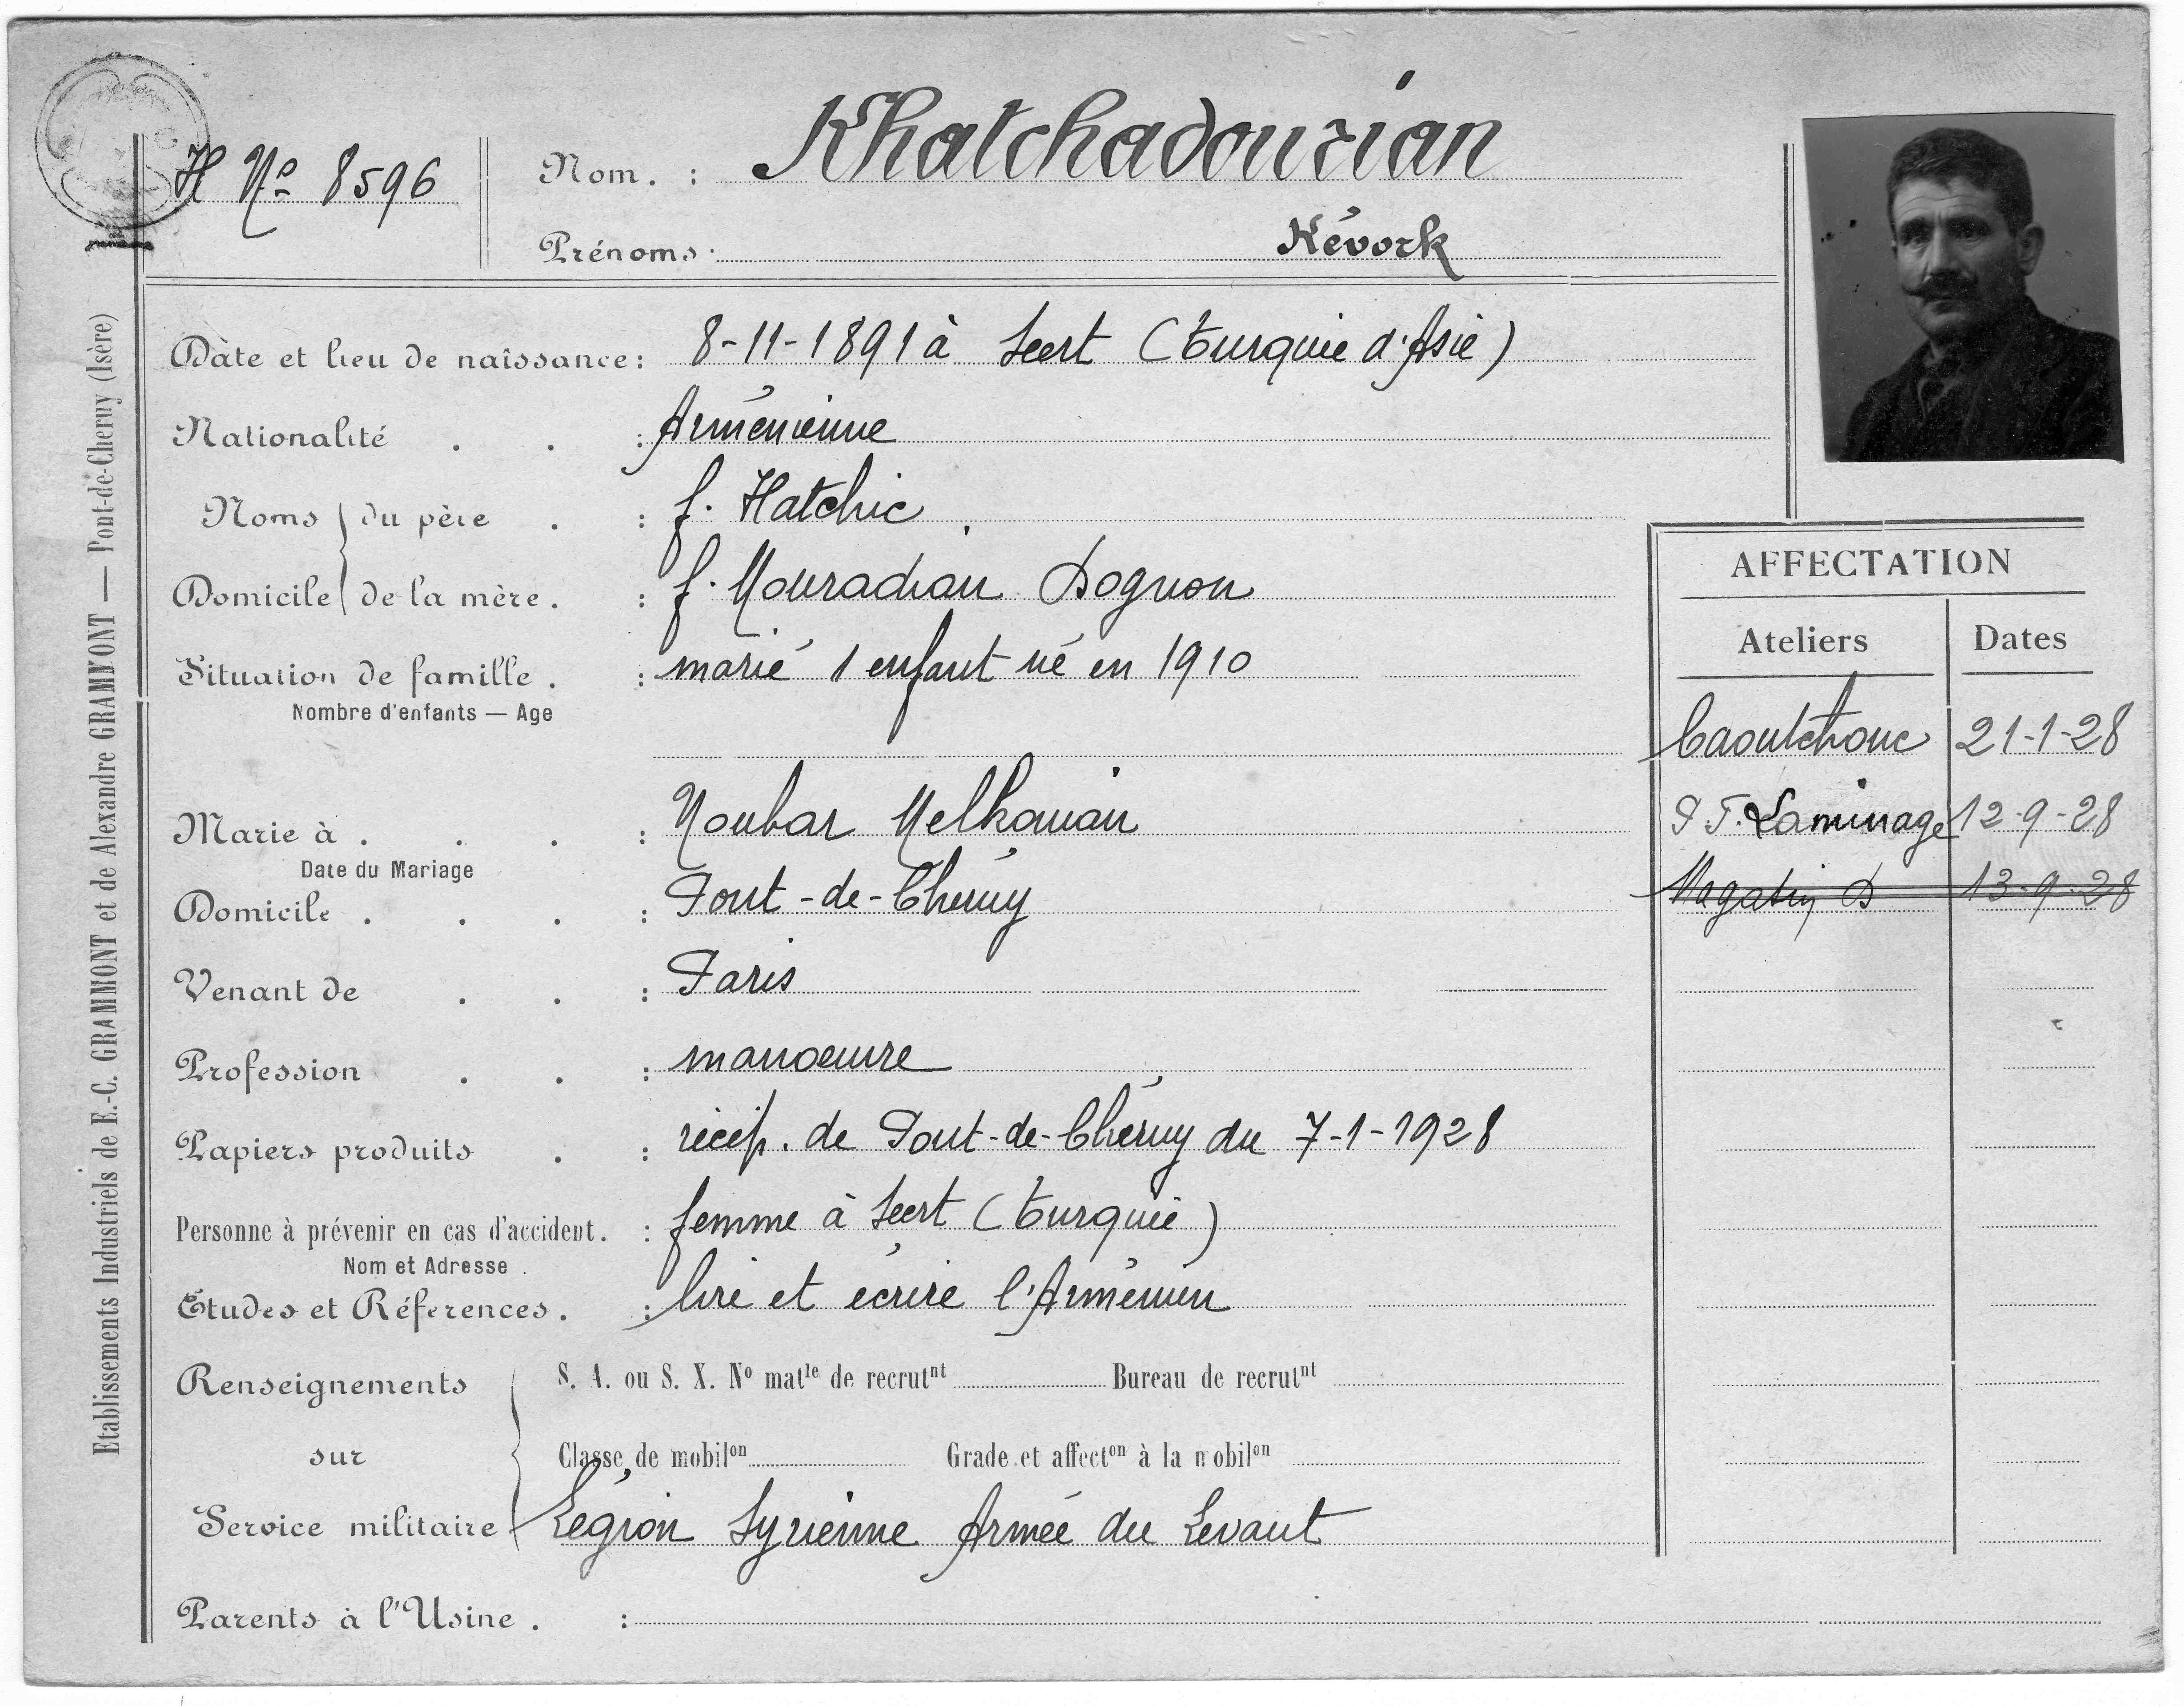 H Nº 8596
Nom. : Khatchadourian
Prénoms. Kévork
Date et lieu de naissance: 8-11-1891 à Seert (Turquie d'Asie)
Nationalité . . : Arménienne
Noms du père . : f. Hatchic
Domicile de la mère. : f. Mouradian Dognon
Situation de famille . : marié 1 enfant né en 1910
Nombre d'enfants — Age
Marie à . . . : Noubar Melkonian
Date du Mariage
Domicile . . . : Pont-de-Chéruy
Venant de . . : Paris
Profession . . : manoeuvre
Papiers produits . : récép. de Pont-de-Chéruy du 7-1-1928
Personne à prévenir en cas d'accident. : femme à Seert (Turquie)
Nom et Adresse .
Etudes et Références. : lire et écrire l'Arménien
Renseignements S. A. ou S. X. Nº matle de recrutnt Bureau de recrutnt
sur Classe de mobilon Grade et affecton à la mobilon
Service militaire Légion Syrienne Armée du Levant
Parents à l'Usine . :
AFFECTATION
Ateliers Dates
Caoutchouc 21-1-28
P T. Laminage 12-9-28
Magasin D 13-9-28
Etablissements Industriels de E.-C. GRAMMONT et de Alexandre GRAMMONT — Pont-de-Cheruy (Isère)